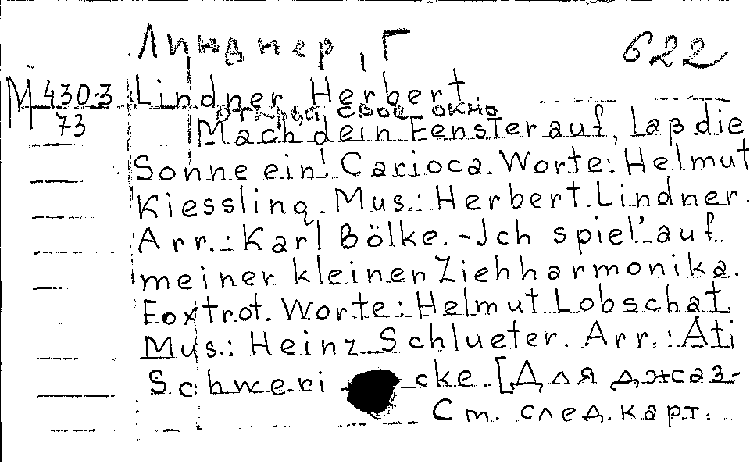 Линднер, Г
622
М 430-3
73
Lindner Herbert
открой свое окно
Mach dein Fenster auf, laß die
Sonne ein! Carioca. Worte: Helmut
Kiessling. Mus.: Herbert Lindner.
Arr.: Karl Bölke. - Ich spiel' auf
meiner kleinen Ziehharmonika.
Foxtrot. Worte: Helmut Lobschat
Mus.: Heinz Schlueter. Arr.: Ati
Schweri cke. [Для джаз-
См. след. карт.